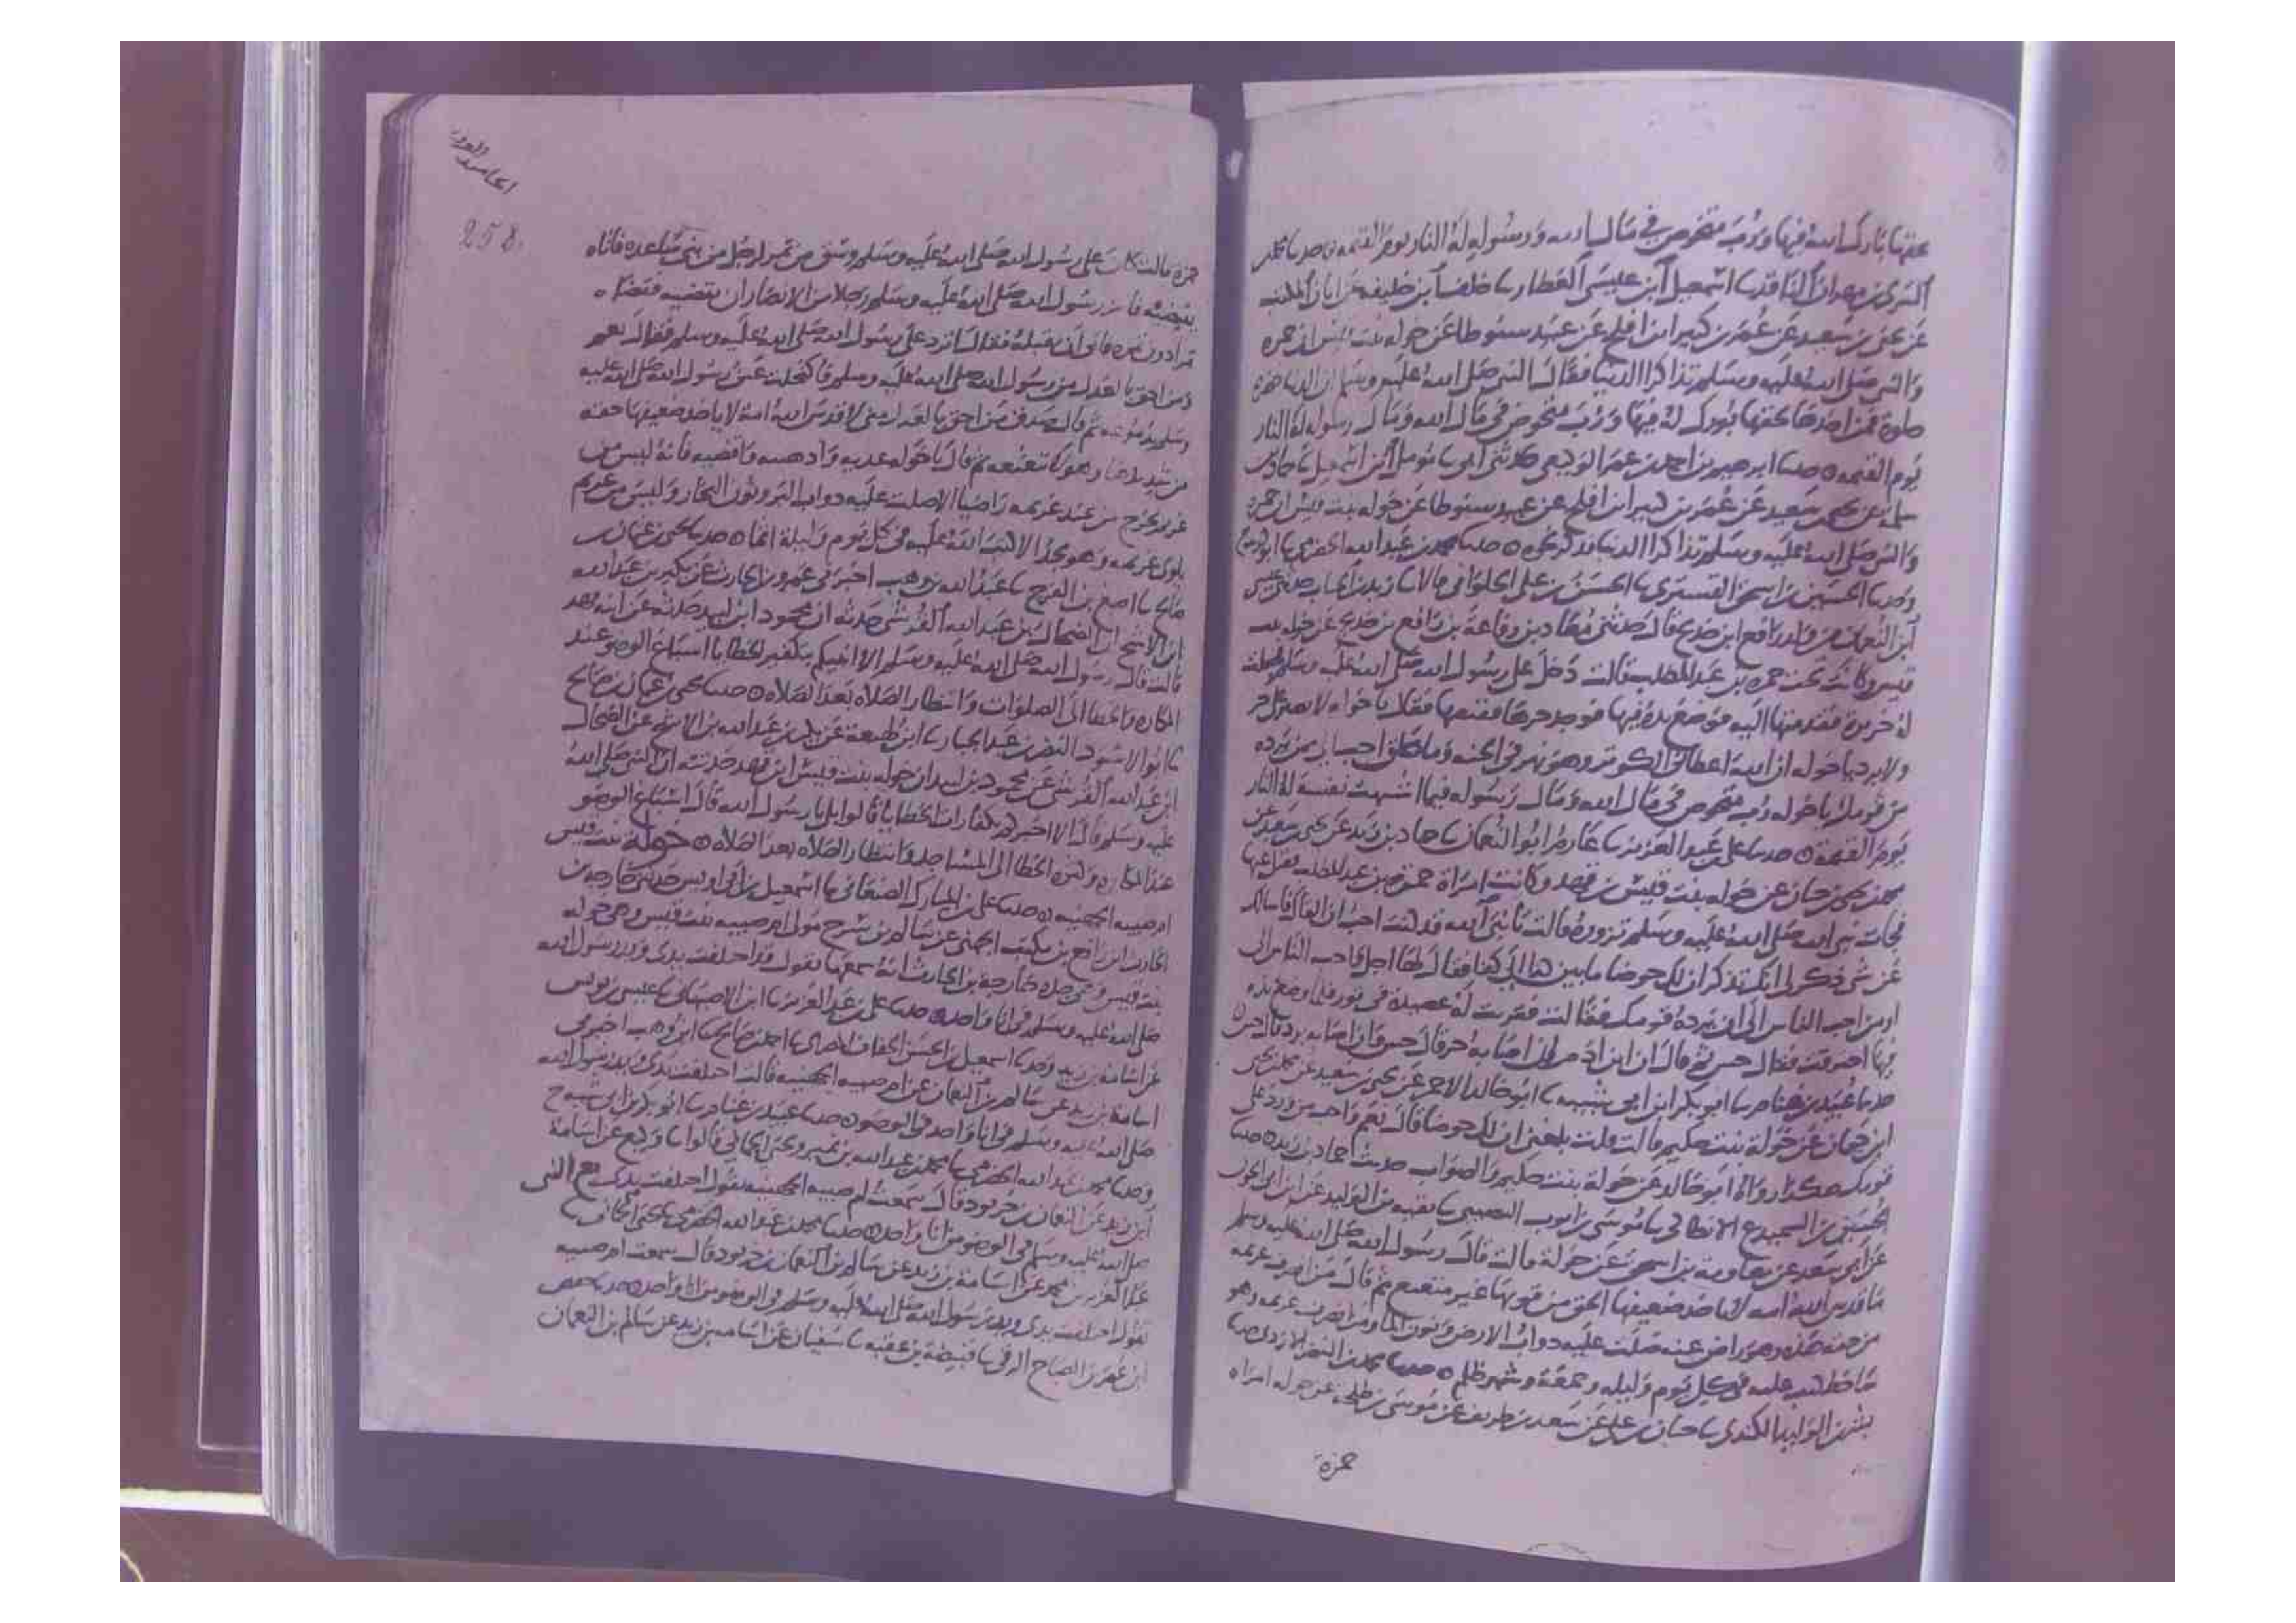 بحقها بارك الله فيها ورب متخوض في مال الله ورسوله له النار يوم القيمة حدثنا محمد
السري بن مهران الناقد ثنا اسمعيل ابن عيسى العطار ثنا خلف ابن خليفة عن ابان المكتب
عن يحيى بن سعيد عن عمر بن كثير ابن افلح عن عبيد سنوطا عن خولة بنت قيس ان حمزة
والنبي صلى الله عليه وسلم تذاكرا الدنيا فقال النبي صلى الله عليه وسلم ان الدنيا خضرة
حلوة فمن اخذها بحقها بورك له فيها ورب متخوض في مال الله ومال رسوله له النار
يوم القيمة حدثنا ابرهيم بن احمد بن عمر الوكيعي حدثني ابي ثنا مومل ابن اسمعيل ثنا حماد بن
سلمة عن يحيى بن سعيد عن عمر بن كثير ابن افلح عن عبيد سنوطا عن خولة بنت قيس ان حمزة
والنبي صلى الله عليه وسلم تذاكرا الدنيا فذكر نحوه حدثنا محمد بن عبد الله الحضرمي ثنا ابو كريب
وحدثنا الحسين بن اسحق التستري ثنا الحسن بن علي الحلواني قالا ثنا زيد بن الحباب حدثني عيسى
ابن النعمان من ولد رافع ابن خديج قال حدثني معاذ بن رفاعة بن رافع بن خديج عن خولة بنت
قيس وكانت تحت حمزة بن عبد المطلب قالت دخل علي رسول الله صلى الله عليه وسلم فجعلت
له خزيرة فقدمتها اليه فوضع يده فيها فوجد حرها فقبضها فقال يا خولة لا نصبر على حر
ولا برد يا خولة ان الله اعطاني الكوثر وهو نهر في الجنة وما خلق احب الي ممن يرده
من قومك يا خولة رب متخوض في مال الله ومال رسوله فيما اشتهت نفسه له النار
يوم القيمة حدثنا علي بن عبد العزيز ثنا عارم ابو النعمان ثنا حماد بن زيد عن يحيى بن سعيد عن
محمد بن يحيى بن حبان عن خولة بنت قيس بن قهد وكانت امراة حمزة بن عبد المطلب
فجاءت نبي الله صلى الله عليه وسلم تزوره قالت يا نبي الله قد كنت احب ان القاك فاسالك
عن شي ذكر لي انك تذكر ان لك حوضا ما بين كذا الى كذا فقال لها اجل واحب الناس الي
او من احب الناس الي ان يرده قومك فقالت فقربت له عصيدة في تور فلما وضع يده
فيها احترقت فقال حس ثم قال ان ابن ادم ان اصابه حر قال حس وان اصابه برد قال حس
حدثنا عبيد بن غنام ثنا ابو بكر ابن ابي شيبة ثنا ابو خالد الاحمر عن يحيى بن سعيد عن محمد بن يحيى
ابن حبان عن خولة بنت حكيم قالت قلت بلغني ان لك حوضا قال نعم واحب من ورد علي
قومك هكذا رواه ابو خالد عن خولة بنت حكيم والصواب حديث حماد بن زيد حدثنا
الحسين بن السميدع الانطاكي ثنا موسى بن ايوب النصيبي ثنا بقية بن الوليد عن ابن ابي الجون
عن ابي سعد عن معاوية بن اسحق عن خولة قالت قال رسول الله صلى الله عليه وسلم
ما قدس الله امة لا ياخذ ضعيفها الحق من قويها غير متعتع ثم قال من انصرف غريمه
من عنده وهو راض عنه صلت عليه دواب الارض ونون الماء ومن انصرف غريمه وهو
ساخط كتب عليه في كل يوم وليلة وجمعة وشهر ظلم حدثنا محمد بن النضر الازدي ثنا
بشر بن الوليد الكندي ثنا حبان بن علي عن سعد بن طريف عن موسى بن طلحة عن خولة امراة
حمزة
الخامسه والعشرين
258
حمزة قالت كان على رسول الله صلى الله عليه وسلم وسق من تمر لرجل من بني ساعدة فاتاه
يقتضيه فامر رسول الله صلى الله عليه وسلم رجلا من الانصار ان يقضيه فقضاه
تمرا دون تمره فابى ان يقبله فقال اترد على رسول الله صلى الله عليه وسلم فقال نعم
ومن احق بالعدل من رسول الله صلى الله عليه وسلم فاكتحلت عين رسول الله صلى الله عليه
وسلم بدموعه ثم قال صدق من احق بالعدل مني لا قدس الله امة لا ياخذ ضعيفها حقه
من شديدها وهو لا يتعتعه ثم قال يا خولة عديه وادهنيه واقضيه فانه ليس من
غريم يخرج من عند غريمه راضيا الا صلت عليه دواب البر ونون البحار وليس من غريم
يلوي غريمه وهو يجد الا كتب الله عليه في كل يوم وليلة اثما حدثنا يحيى بن عثمان بن
صالح ثنا اصبغ بن الفرج ثنا عبد الله بن وهب اخبرني عمرو بن الحارث عن بكير بن عبد الله
ابن الاشج ان الضحاك بن عبد الله القرشي حدثه ان محمود ابن لبيد حدثه عن ابنة قهد
قالت قال رسول الله صلى الله عليه وسلم الا انبيكم بتكفير الخطايا اسباغ الوضو عند
المكاره والخطا الى الصلوات وانتظار الصلاه بعد الصلاه حدثنا يحيى بن عثمان بن صالح
ثنا ابو الاسود النضر بن عبد الجبار ثنا ابن لهيعة عن بكير بن عبد الله بن الاشج عن الضحاك
ابن عبد الله القرشي عن محمود بن لبيد ان خولة بنت قيس ابن قهد حدثته ان النبي صلى الله
عليه وسلم قال الا اخبركم بكفارات الخطايا قالوا بلى يا رسول الله قال اسباغ الوضو
عند المكاره وكثرة الخطا الى المساجد وانتظار الصلاه بعد الصلاه خولة بنت قيس
ام صبيه الجهنيه حدثنا علي بن المبارك الصنعاني ثنا اسمعيل بن ابي اويس حدثني خارجة بن
الحارث ابن رافع بن مكيث الجهني عن سالم بن سرج مولى ام صبيه بنت قيس وهي خولة
بنت قيس وهي جدة خارجة بن الحارث انه سمعها تقول قد اختلفت يدي ويد رسول الله
صلى الله عليه وسلم في انا واحد حدثنا علي بن عبد العزيز ثنا ابن الاصبهاني ثنا عيسى بن يونس
عن اسامة بن زيد وحدثنا اسمعيل بن الحسن الخفاف المصري ثنا احمد بن صالح ثنا ابن وهب اخبرني
اسامة بن زيد عن سالم بن النعمان عن ام صبيه الجهنيه قالت اختلفت يدي ويد رسول الله
صلى الله عليه وسلم في انا واحد في الوضو حدثنا عبيد بن غنام ثنا ابو بكر بن ابي شيبة ح
وحدثنا محمد بن عبد الله الحضرمي ثنا محمد بن عبد الله بن نمير ويحيى الحماني قالوا ثنا وكيع عن اسامة
ابن زيد عن النعمان بن خربوذ قال سمعت ام صبيه الجهنيه تقول اختلفت يدي مع النبي
صلى الله عليه وسلم في الوضو من انا واحد حدثنا محمد بن عبد الله الحضرمي ثنا يحيى الحماني ثنا
عبد العزيز بن محمد عن اسامة بن زيد عن سالم بن النعمان بن خربوذ قال سمعت ام صبيه
تقول اختلفت يدي ويد رسول الله صلى الله عليه وسلم في الوضو من انا واحد حدثنا حفص
ابن عمر بن الصباح الرقي ثنا قبيصة بن عقبة ثنا سفيان عن اسامة بن زيد عن سالم بن النعمان